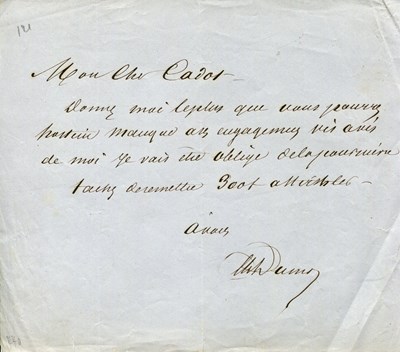 121
Mon Cher Cadot
Donnez moi le plus que vous pourrez
manque a ses engagemens vis avis
de moi je vais être obligé de la poursuivre
tachez de remettre 300 f
A vous
Alex Dumas